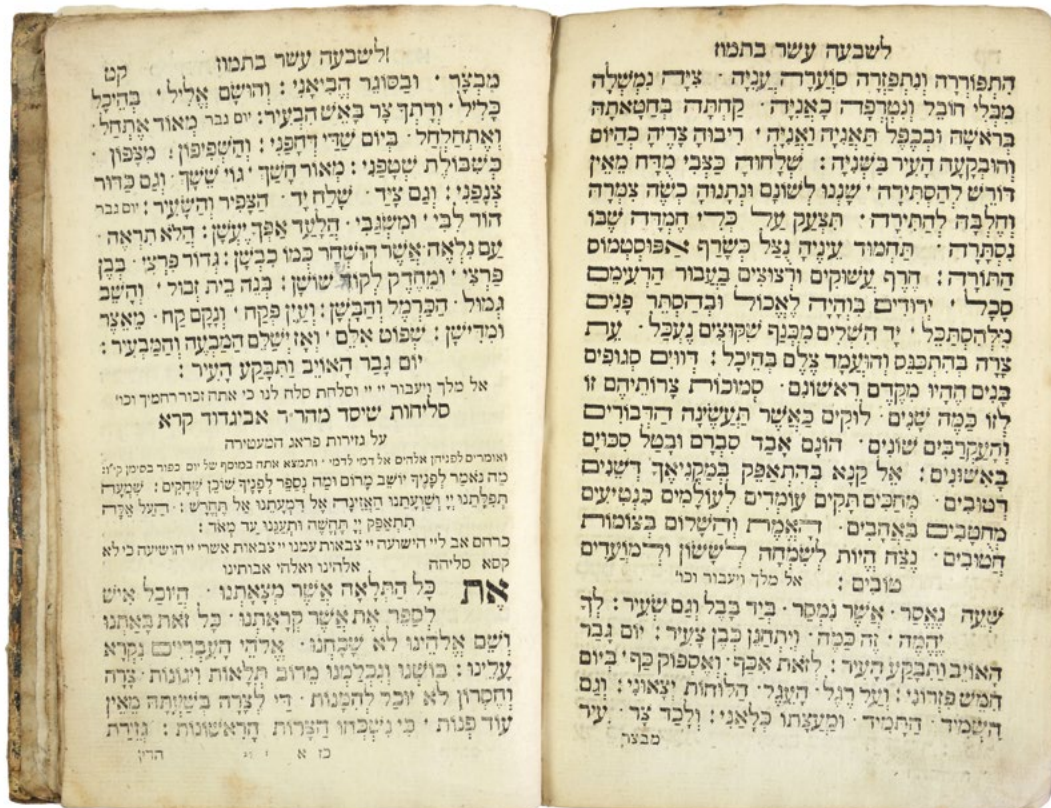 לשבעה עשר בתמוז
הַתְפוֹרָרָה וְנִתְפַּזְּרָה סוֹעֲרָה עֲנִיָּה · צִידָה נִמְשְׁלָה
מִבְּלִי חוֹבֵל וְנִטְרְפָה כָּאֳנִיָּה · קְחִתָּהּ בְּחַטֹּאתָהּ
בְּרֹאשָׁהּ וּבְכֶפֶל תַּאֲנִיָּה וַאֲנִיָּה · רִיבוּהָ צָרֶיהָ כְּהַיּוֹם
וְהוּבְקְעָה הָעִיר בַּשְּׁנִיָּה : שִׁלְּחוּהָ כִּצְבִי מֻדָּח מֵאֵין
דּוֹרֵשׁ לְהַסְתִּירָהּ · שָׁנְנוּ לְשׁוֹנָם וּנְתָנוּהָ כְּשֶׂה צִמְרָהּ
וְחֶלְבָּהּ לְהַתִּירָהּ · תִּצְעַק עַל כְּלִי חֶמְדָּה שֶׁבּוֹ
נִסְתָּרָה · תַּחְמוּד עֵינֶיהָ נֻצַּל כְּשָׂרַף אַפּוֹסְטְמוֹס
הַתּוֹרָה : חֵרֵף עֲשׁוּקִים וּרְצוּצִים בַּעֲבוּר הַרְעִימָם
סָכָל · יְרוּדִים בְּוְהָיָה לֶאֱכוֹל וּבְהַסְתֵּר פָּנִים
מִלְּהִסְתַּכֵּל · יָד הִשְׁלִים מִכְּנַף שִׁקּוּצִים נֶעְכָּל · עֵת
צָרָה בְּהִתְכַּנֵּס וְהוּעֲמַד צֶלֶם בְּהֵיכָל : דְּווּיִם סְגוּפִים
בָּנִים הֶהָיוּ מִקֶּדֶם רִאשׁוֹנִם · סְמוּכוֹת צָרוֹתֵיהֶם זוֹ
לְזוֹ כַּמֶּה שָׁנִים · לוֹקִים כַּאֲשֶׁר תַּעֲשֶׂינָה הַדְּבוֹרִים
וְהָעַקְרַבִּים שׁוֹנִים · הוֹגָם אָבַד סִבְרָם וּבָטֵל סִכּוּיָם
בְּאִשּׁוּנִים : אֵל קַנָּא בְּהִתְאַפֵּק בִּמְקַנִּיאֶךָ דְּשֵׁנִים
רְטוּבִים · מְחַכִּים תָּקִים עוֹמְדִים לְעוֹלָמִים כִּנְטִיעִים
מְחֻטָּבִים בַּאֲהָבִים · הָאֱמֶת וְהַשָּׁלוֹם בְּצוֹמוֹת
חֲטוּבִים · נֶצַח הֱיוֹת לְשִׂמְחָה לְשָׂשׂוֹן וּלְמוֹעֲדִים
טוֹבִים : אל מלך ויעבור וכו'
שָׁעָה נֶאֱסַר · אֲשֶׁר נִמְסַר · בְּיַד בָּבֶל וְגַם שֵׂעִיר : לְךָ
יֶהֱמֶה · זֶה כַּמֶּה · וְיִתְחַנֵּן כְּבֶן צָעִיר : יוֹם גָּבַר
הָאוֹיֵב וַתִּבָּקַע הָעִיר : לְזֹאת אֶכַּף · וְאֶסְפּוֹק כַּף · בְּיוֹם
חִמֵּשׁ פִּזְּרוּנִי : וְעַל רֶגֶל · הָעֵגֶל · הַלּוּחוֹת יְצָאוּנִי : וְגַם
הִשְׁמִיד · הַתָּמִיד · וּמֵעֶצְתּוֹ כְּלָאַנִי : וְלָכַד צַר · עִיר
מבצר
לשבעה עשר בתמוז קט
מִבְצָר · וּבַסּוּגַר הֱבִיאָנִי : וְהוּשַׂם אֱלִיל · בְּהֵיכָל
כְּלִיל · וְדָתְךָ צַר בָּאֵשׁ הִבְעִיר : יום גבר מְאוֹד אֶתְחַל ·
וְאֶתְחַלְחַל · בְּיוֹם שַׁדַּי דְּחָפַנִי : וְהַשְּׁפִיפוֹן · מִצָּפוֹן
כְּשִׁבּוֹלֶת שְׁטָפַנִי : מְאוֹר חָשַׁךְ · גְּוִי שֵׁשַׁךְ · וְגַם כַּדּוּר
צְנָפַנִי : וְגַם צַיָּד · שָׁלַח יָד · הַצָּפִיר וְהַשָּׂעִיר : יום גבר
הוֹד לִבִּי · וּמִשְׂגַּבִּי · הֲלָעַד אַפְּךָ יֶעְשָׁן : הֲלֹא תִרְאֶה ·
עַם נִלְאָה אֲשֶׁר הוּשְׁחַר כְּמוֹ כִבְשָׁן : גְּדוֹר פִּרְצִי · בְּבֶן
פַּרְצִי · וּמֵחֶדֶק לְקוֹט שׁוֹשָׁן : בְּנֵה בֵית זְבוּל · וְהָשֵׁב
גְּמוּל · הַכַּרְמֶל וְהַבָּשָׁן : וְעַיִן פְּקַח · וְנָקָם קַח · מֵאֵצֶר
וּמִדִּישָׁן : שְׁפוֹט אִלֵּם · וְאָז יְשַׁלֵּם הַמַּבְעֶה וְהַמַּבְעִיר :
יוֹם גָּבַר הָאוֹיֵב וַתִּבָּקַע הָעִיר :
אל מלך ויעבור יי יי וסלחת סלה לנו כי אתה זכור רחמיך וכו'
סליחות שיסד מהר״ר אביגדור קרא
על גזירות פראג המעטירה
ואומרים לפניהן אלהים אל דמי לדמי · ותמצא אתה במוסף של יום כפור בסימן ק״ו :
מַה נֹּאמַר לְפָנֶיךָ יוֹשֵׁב מָרוֹם וּמַה נְּסַפֵּר לְפָנֶיךָ שׁוֹכֵן שְׁחָקִים : שִׁמְעָה
תְפִלָּתֵנוּ יְיָ וְשַׁוְעָתֵנוּ הַאֲזִינָה אֶל דִּמְעָתֵנוּ אַל תֶּחֱרַשׁ : הַעַל אֵלֶּה
תִתְאַפַּק יְיָ תֶּחֱשֶׁה וּתְעַנֵּנוּ עַד מְאֹד :
כרחם אב ליי הישועה יי צבאות עמנו יי צבאות אשרי יי הושיעה כי לא
קסא סליחה אלהינו ואלהי אבותינו
אֵת כָּל הַתְּלָאָה אֲשֶׁר מְצָאָתְנוּ · הֲיוּכַל אִישׁ
לְסַפֵּר · אֵת אֲשֶׁר קְרָאַתְנוּ · כָּל זֹאת בָּאַתְנוּ
וְשֵׁם אֱלֹהֵינוּ לֹא שָׁכָחְנוּ · אֱלֹהֵי הָעִבְרִיִּים נִקְרָא
עָלֵינוּ : בּוֹשְׁנוּ וְנִכְלַמְנוּ מֵרוֹב תְּלָאוֹת וִיגוֹנוֹת · צָרָה
וְחֶסְרוֹן לֹא יוּכַל לְהִמָּנוֹת · דַּי לְצָרָה בִּשְׁעָתָהּ מֵאֵין
עוֹד פְּנוֹת · כִּי נִשְׁכְּחוּ הַצָּרוֹת הָרִאשׁוֹנוֹת : גְּזֵרַת
כז א הדין